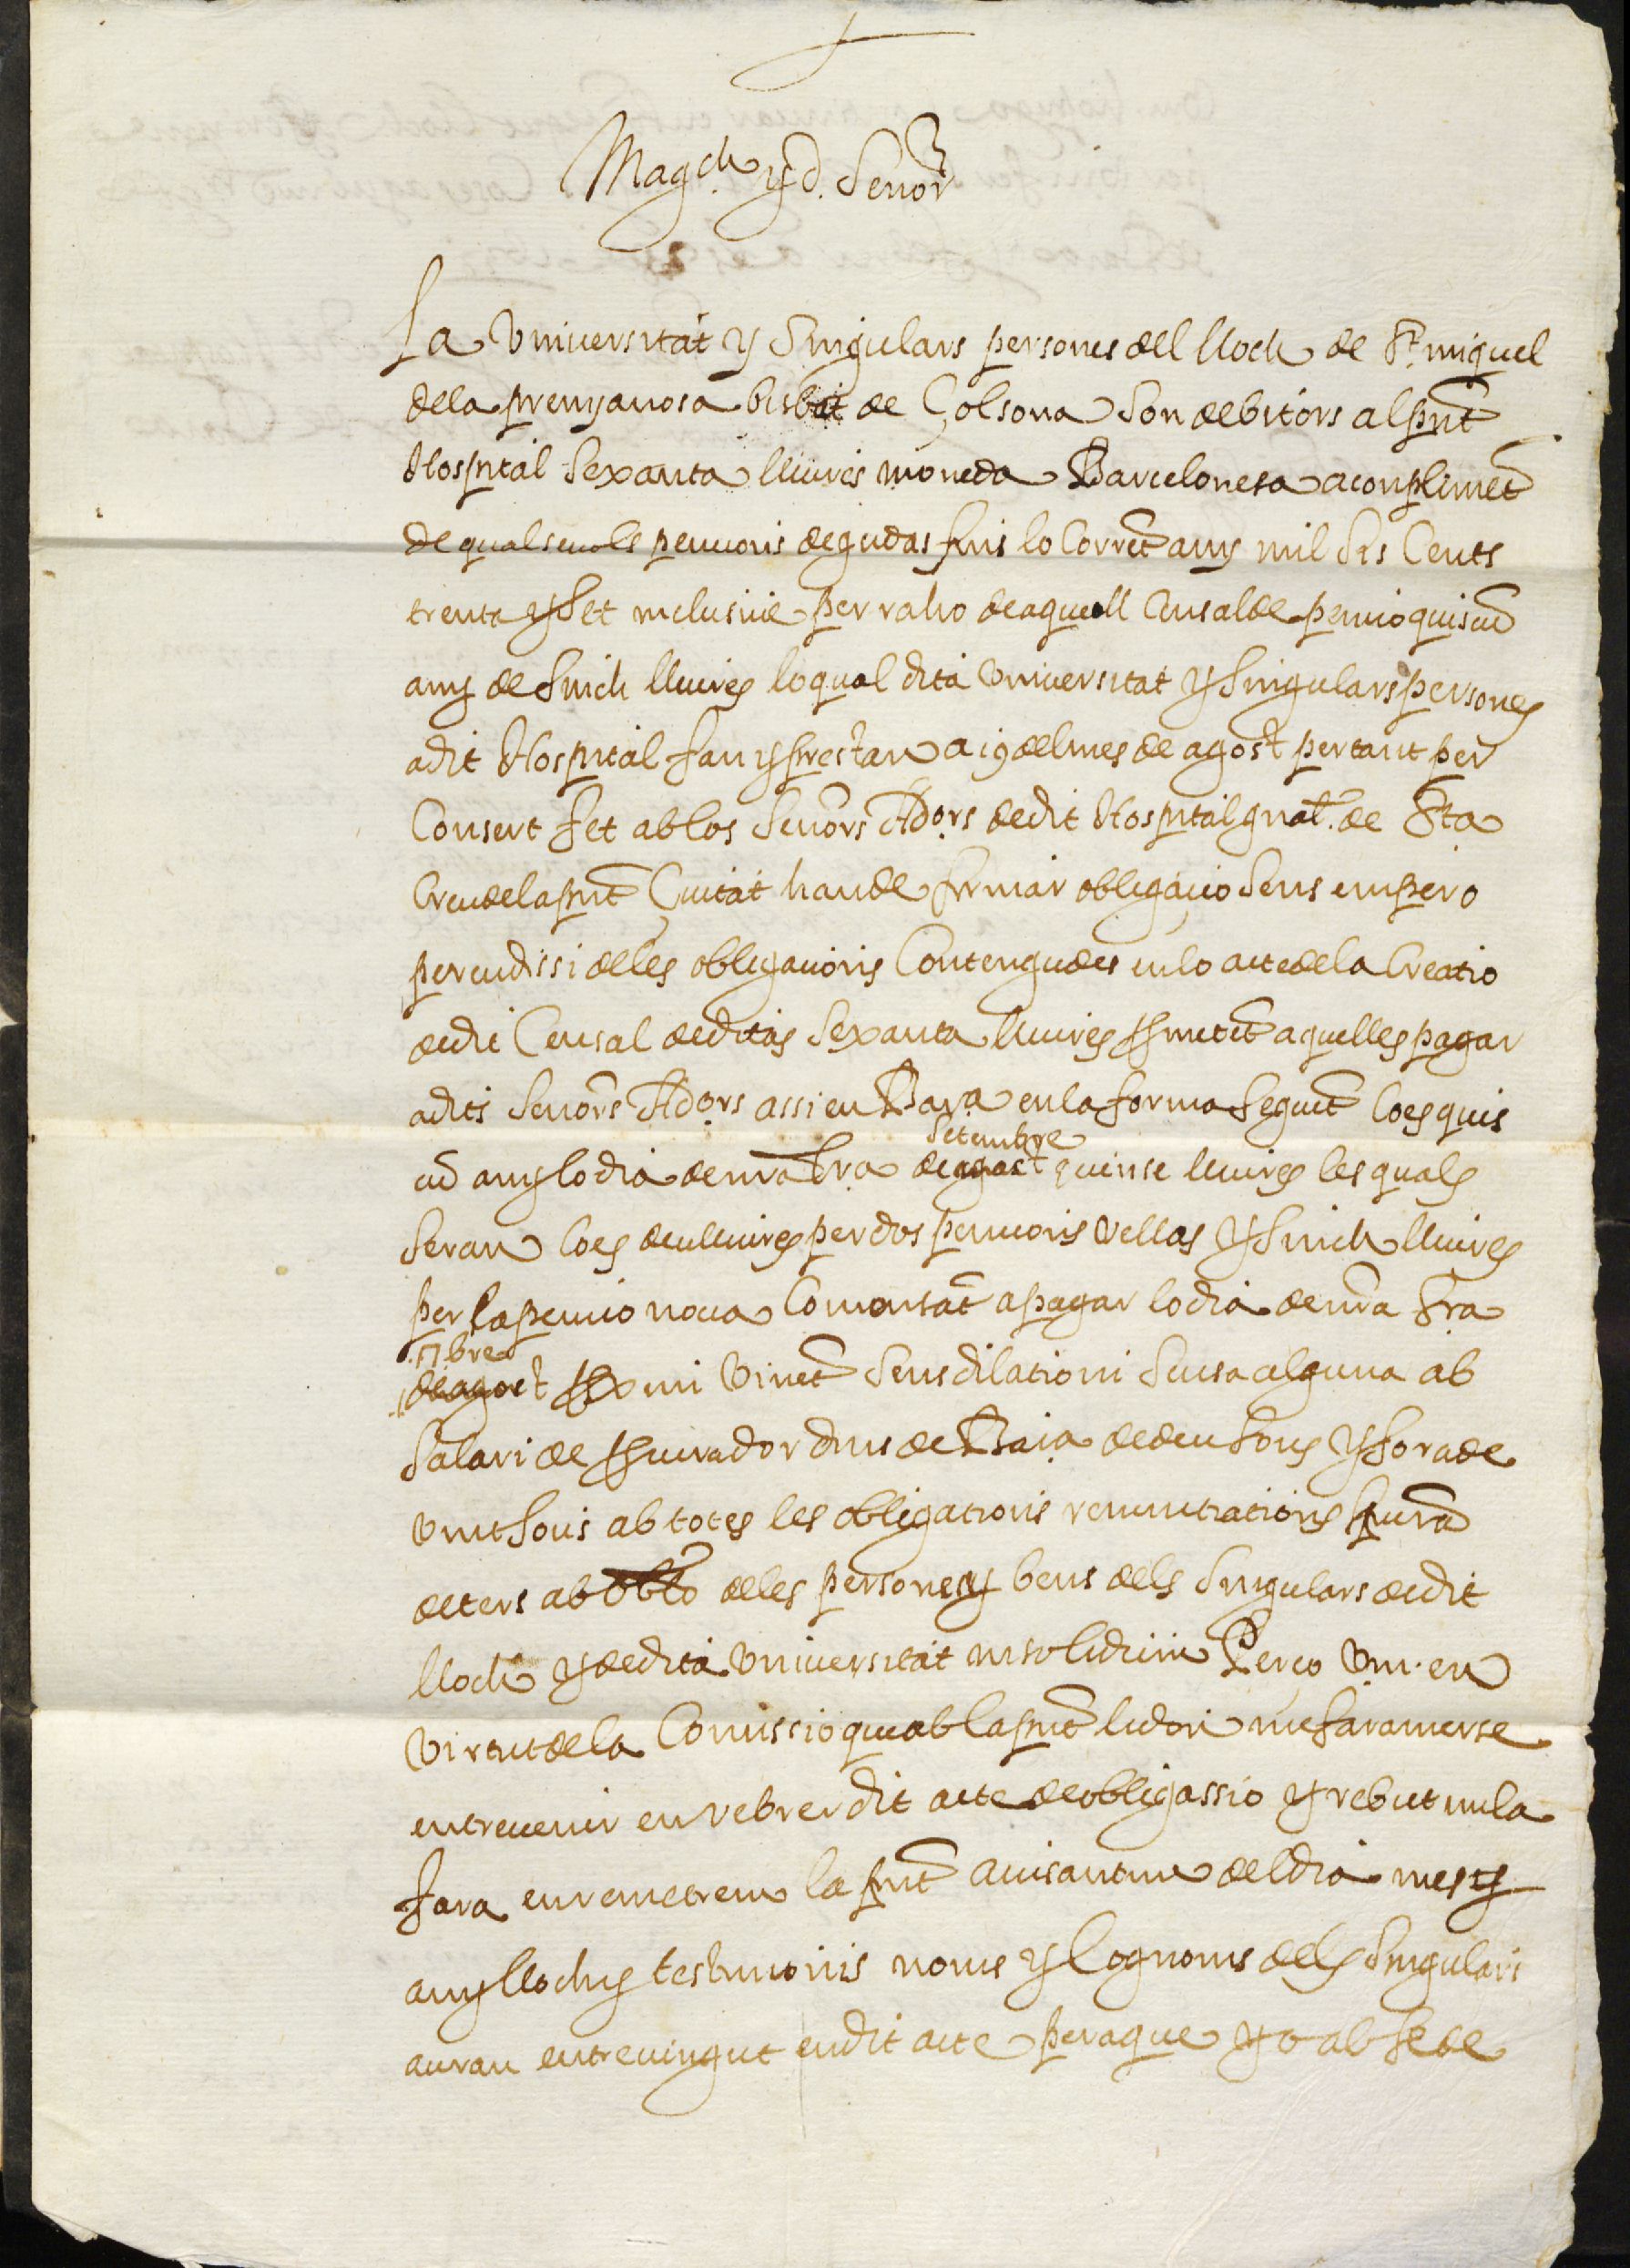 Mag.ch y d. Senor
La Vniuersitat y Singulars persones dell lloch de St. miquel
dela prenyanosa bisbat de Çolsona Son debitors al pnt
Hospital Sexanta lliures moneda Barcelonesa a compliment
de qualseuols pencions degudas fins lo Corrent any mil sis Cents
trenta y set inclusiue per raho de aquell Censal de pencio quiscu
any de Sinch lliures lo qual dita Vniuersitat y Singulars persones
a dit Hospital fan y prestan a 19 del mes de agost per tant per
Consert fet ab los Senors Ados dedit Hospital gnal. de Sta
Creu dela pnt Ciutat han de firmar obligacio Sens empero
perjudissi delles obligacions Contengudes en lo acte dela Creatio
de dit Censal de ditas Sexanta lliures prometent aquelles pagar
a dits Senors Adors assi en Bara en la forma Seguent Coes quis
cu any lo dia de nra Sra Setembre
de agost quinse lliures les quals
Seran Coes deu lliures per dos pencions Vellas y Sinch lliures
per la pencio noua Comensat a pagar lo dia de nra Sra
7bre
de agost pro vinent Sens dilatio ni Scusa alguna ab
Salari de Procurador dins de Bara de deu Sous y fora de
vint Sous ab totes les obligations renuntiations jura
etters ab oblo delles persones y bens dels Singulars de dit
lloch y de dita Vniuersitat insolidum Perço Vm. en
Virtut dela Comissio que ab la pnt li don me fara merse
entreuenir en rebrer dit acte de obligassio y rebut mela
fara en remetrem la pnt auisantme del dia mes y
any lloch y testimonis noms y Cognoms dels Singulars
auran entreuingut en dit acte peraque yo ab fe de